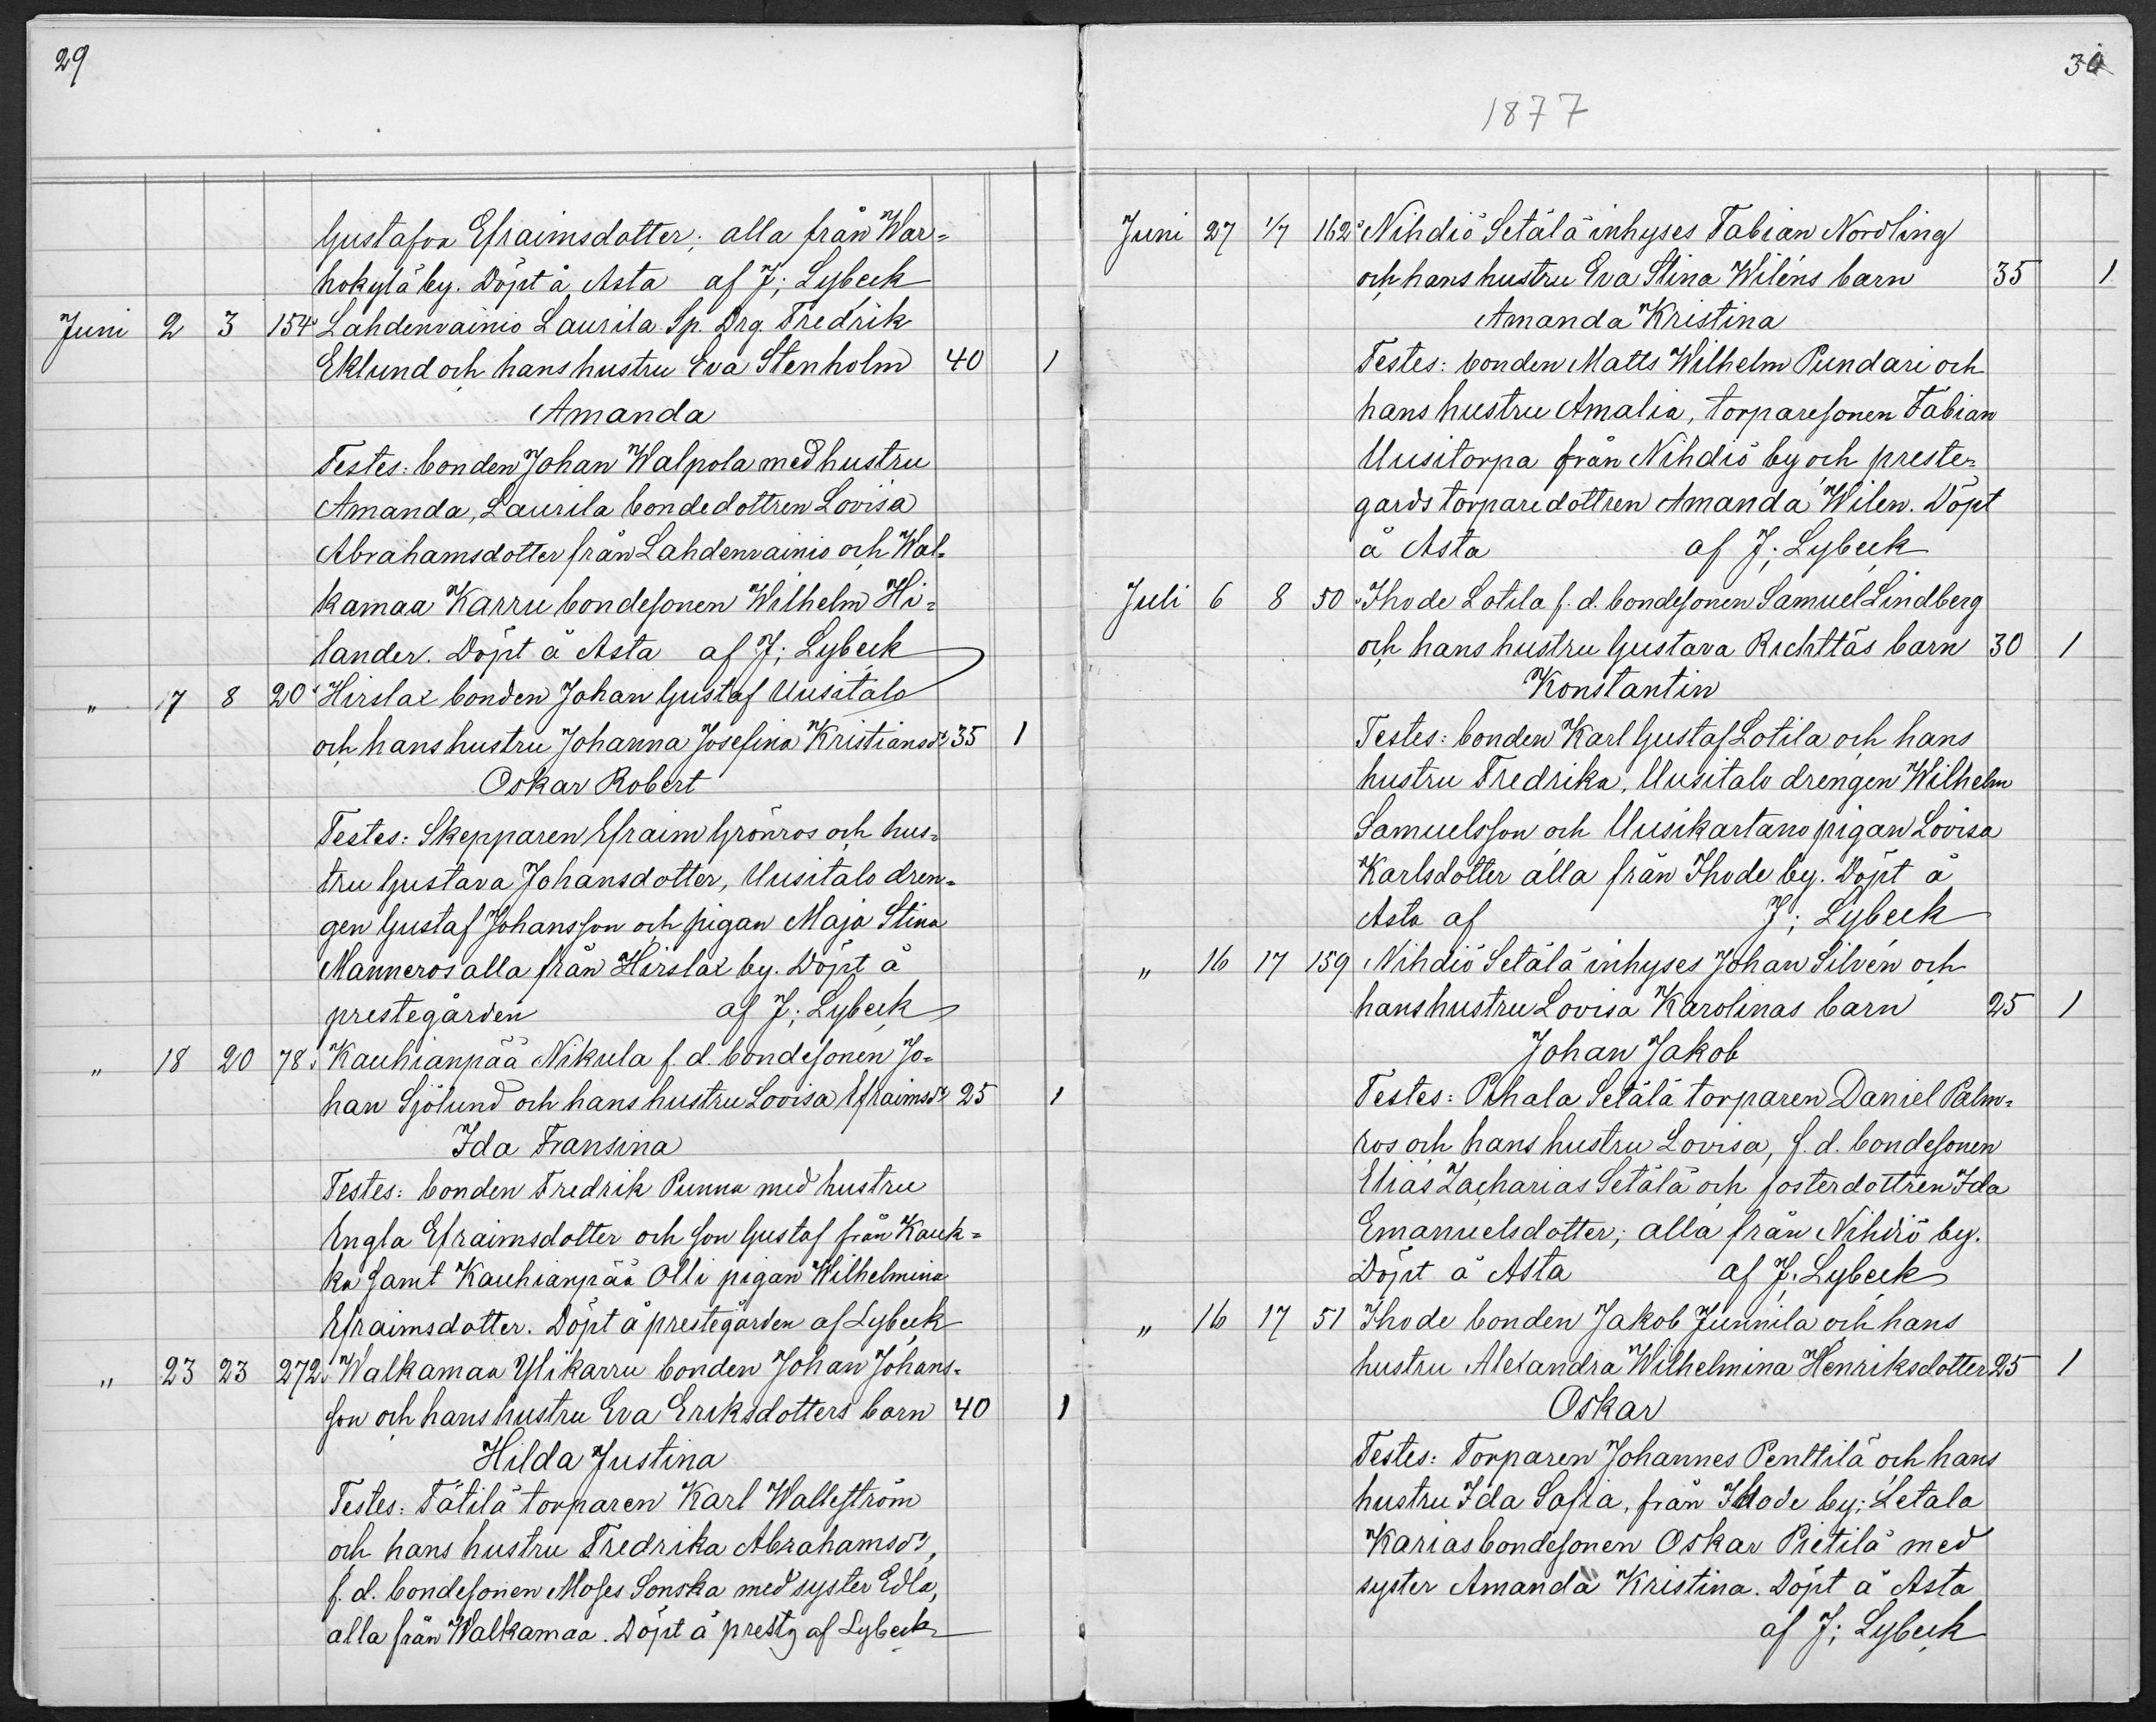 29
Gustafva Efraimsdotter; alla från War=
hokylä by. Döpt å Asta af J; Lybeck
Juni 2 3 154. Lahdenvainio Laurila Sp. Drg. Fredrik
Eklund och hans hustru Eva Stenholm 40 1
Amanda
Testes: bonden Johan Walpola med hustru
Amanda, Laurila bondedottren Lovisa
Abrahamsdotter från Lahdenvainio och Wal=
kamaa Karru bondesonen Wilhelm Hi=
lander. Döpt å Asta af J; Lybeck
" 7 8 20. Hirslax bonden Johan Gustaf Uusitalo
och hans hustru Johanna Josefina Kristiansdr 35 1
Oskar Robert
Testes: Skepparen Efraim Grönros och hus=
tru Gustava Johansdotter, Uusitalo dren=
gen Gustaf Johansson och pigan Maja Stina
Manneros alla från Hirslax by. Döpt å
prestegården af J; Lybeck
" 18 20 78. Kauhianpää Nikula f. d. bondesonen Jo=
han Sjölund och hans hustru Lovisa Efraimsdr 25 1
Ida Fransina
Testes: bonden Fredrik Punna med hustru
Engla Efraimsdotter och son Gustaf från Kauk=
ka samt Kauhianpää Olli pigan Wilhelmina
Efraimsdotter. Döpt å prestegården af Lybeck
" 23 23 272. Walkamaa Ylikarru bonden Johan Johans=
son och hans hustru Eva Eriksdotters barn 40 1
Hilda Justina
Testes: Tätilä torparen Karl Walleström
och hans hustru Fredrika Abrahamsdr,
f. d. bondesonen Moses Sonska med syster Edla,
alla från Walkamaa. Döpt å prestg af Lybeck
30
1877
Juni 27 1/7 162. Nihdiö Setälä inhyses Fabian Nordling
och hans hustru Eva Stina Wiléns barn 35 1
Amanda Kristina
Testes: bonden Matts Wilhelm Pundari och
hans hustru Amalia, torparesonen Fabian
Uusitorpa från Nihdiö by och preste=
gards torparedottren Amanda Wilen. Döpt
å Asta af J; Lybeck
Juli 6 8 50. Ihode Lotila f. d. bondesonen Samuel Lindberg
och hans hustru Gustava Richttäs barn 30 1
Konstantin
Testes: bonden Karl Gustaf Lotila och hans
hustru Fredrika, Uusitalo drengen Wilhelm
Samuelsson och Uusikartano pigan Lovisa
Karlsdotter alla från Ihode by. Döpt å
Asta af J; Lybeck
" 16 17 159 Nihdiö Setälä inhyses Johan Silvén och
hans hustru Lovisa Karolinas barn 25 1
Johan Jakob
Testes: Pihala Setälä torparen Daniel Palm=
ros och hans hustru Lovisa, f. d. bondesonen
Elias Zacharias Setälä och fosterdottren Ida
Emanuelsdotter; alla från Nihdiö by.
Döpt å Asta af J. Lybeck
" 16 17 51 Ihode bonden Jakob Junnila och hans
hustru Alexandra Wilhelmina Henriksdotter 25 1
Oskar
Testes: Torparen Johannes Penttilä och hans
hustru Ida Sofia, från Ihode by; Letala
Karias bondesonen Oskar Pietilä med
syster Amanda Kristina. Döpt å Asta
af J; Lybeck